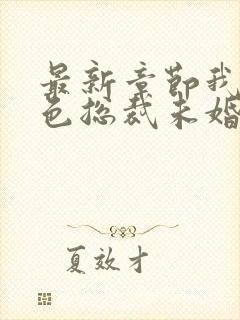 最新章节我
色总裁未婚
夏效才